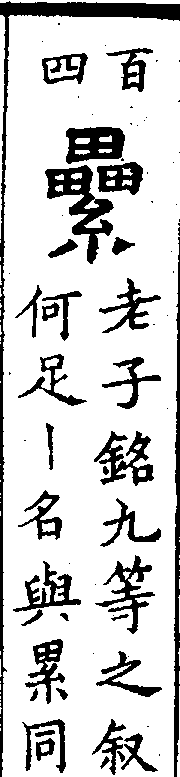 百四
纍
老子銘九等之叙
何足丨名與累同